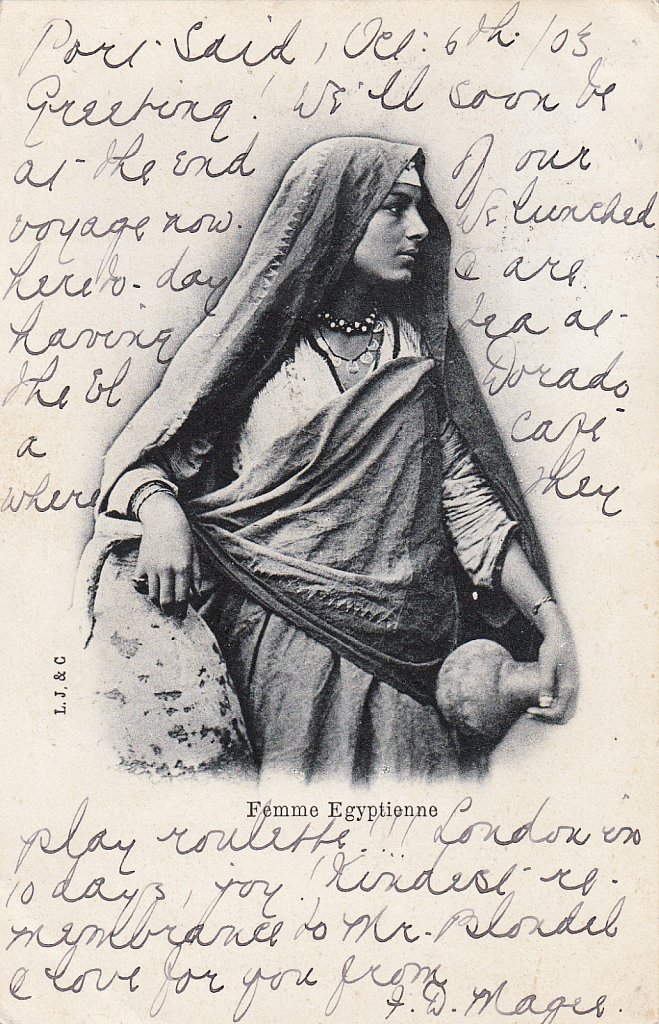 Port-Said, Oct: 6th. /03
Greeting! We'll soon be
at the end of our
voyage now. We lunched
here to-day & are
having tea at
the El Dorado
a café
where they
L. J. & C
Femme Egyptienne
play roulette!!! London in
10 days, joy! Kindest re-
membrance to Mr. Blondel
& love for you from
F. D. Magee.